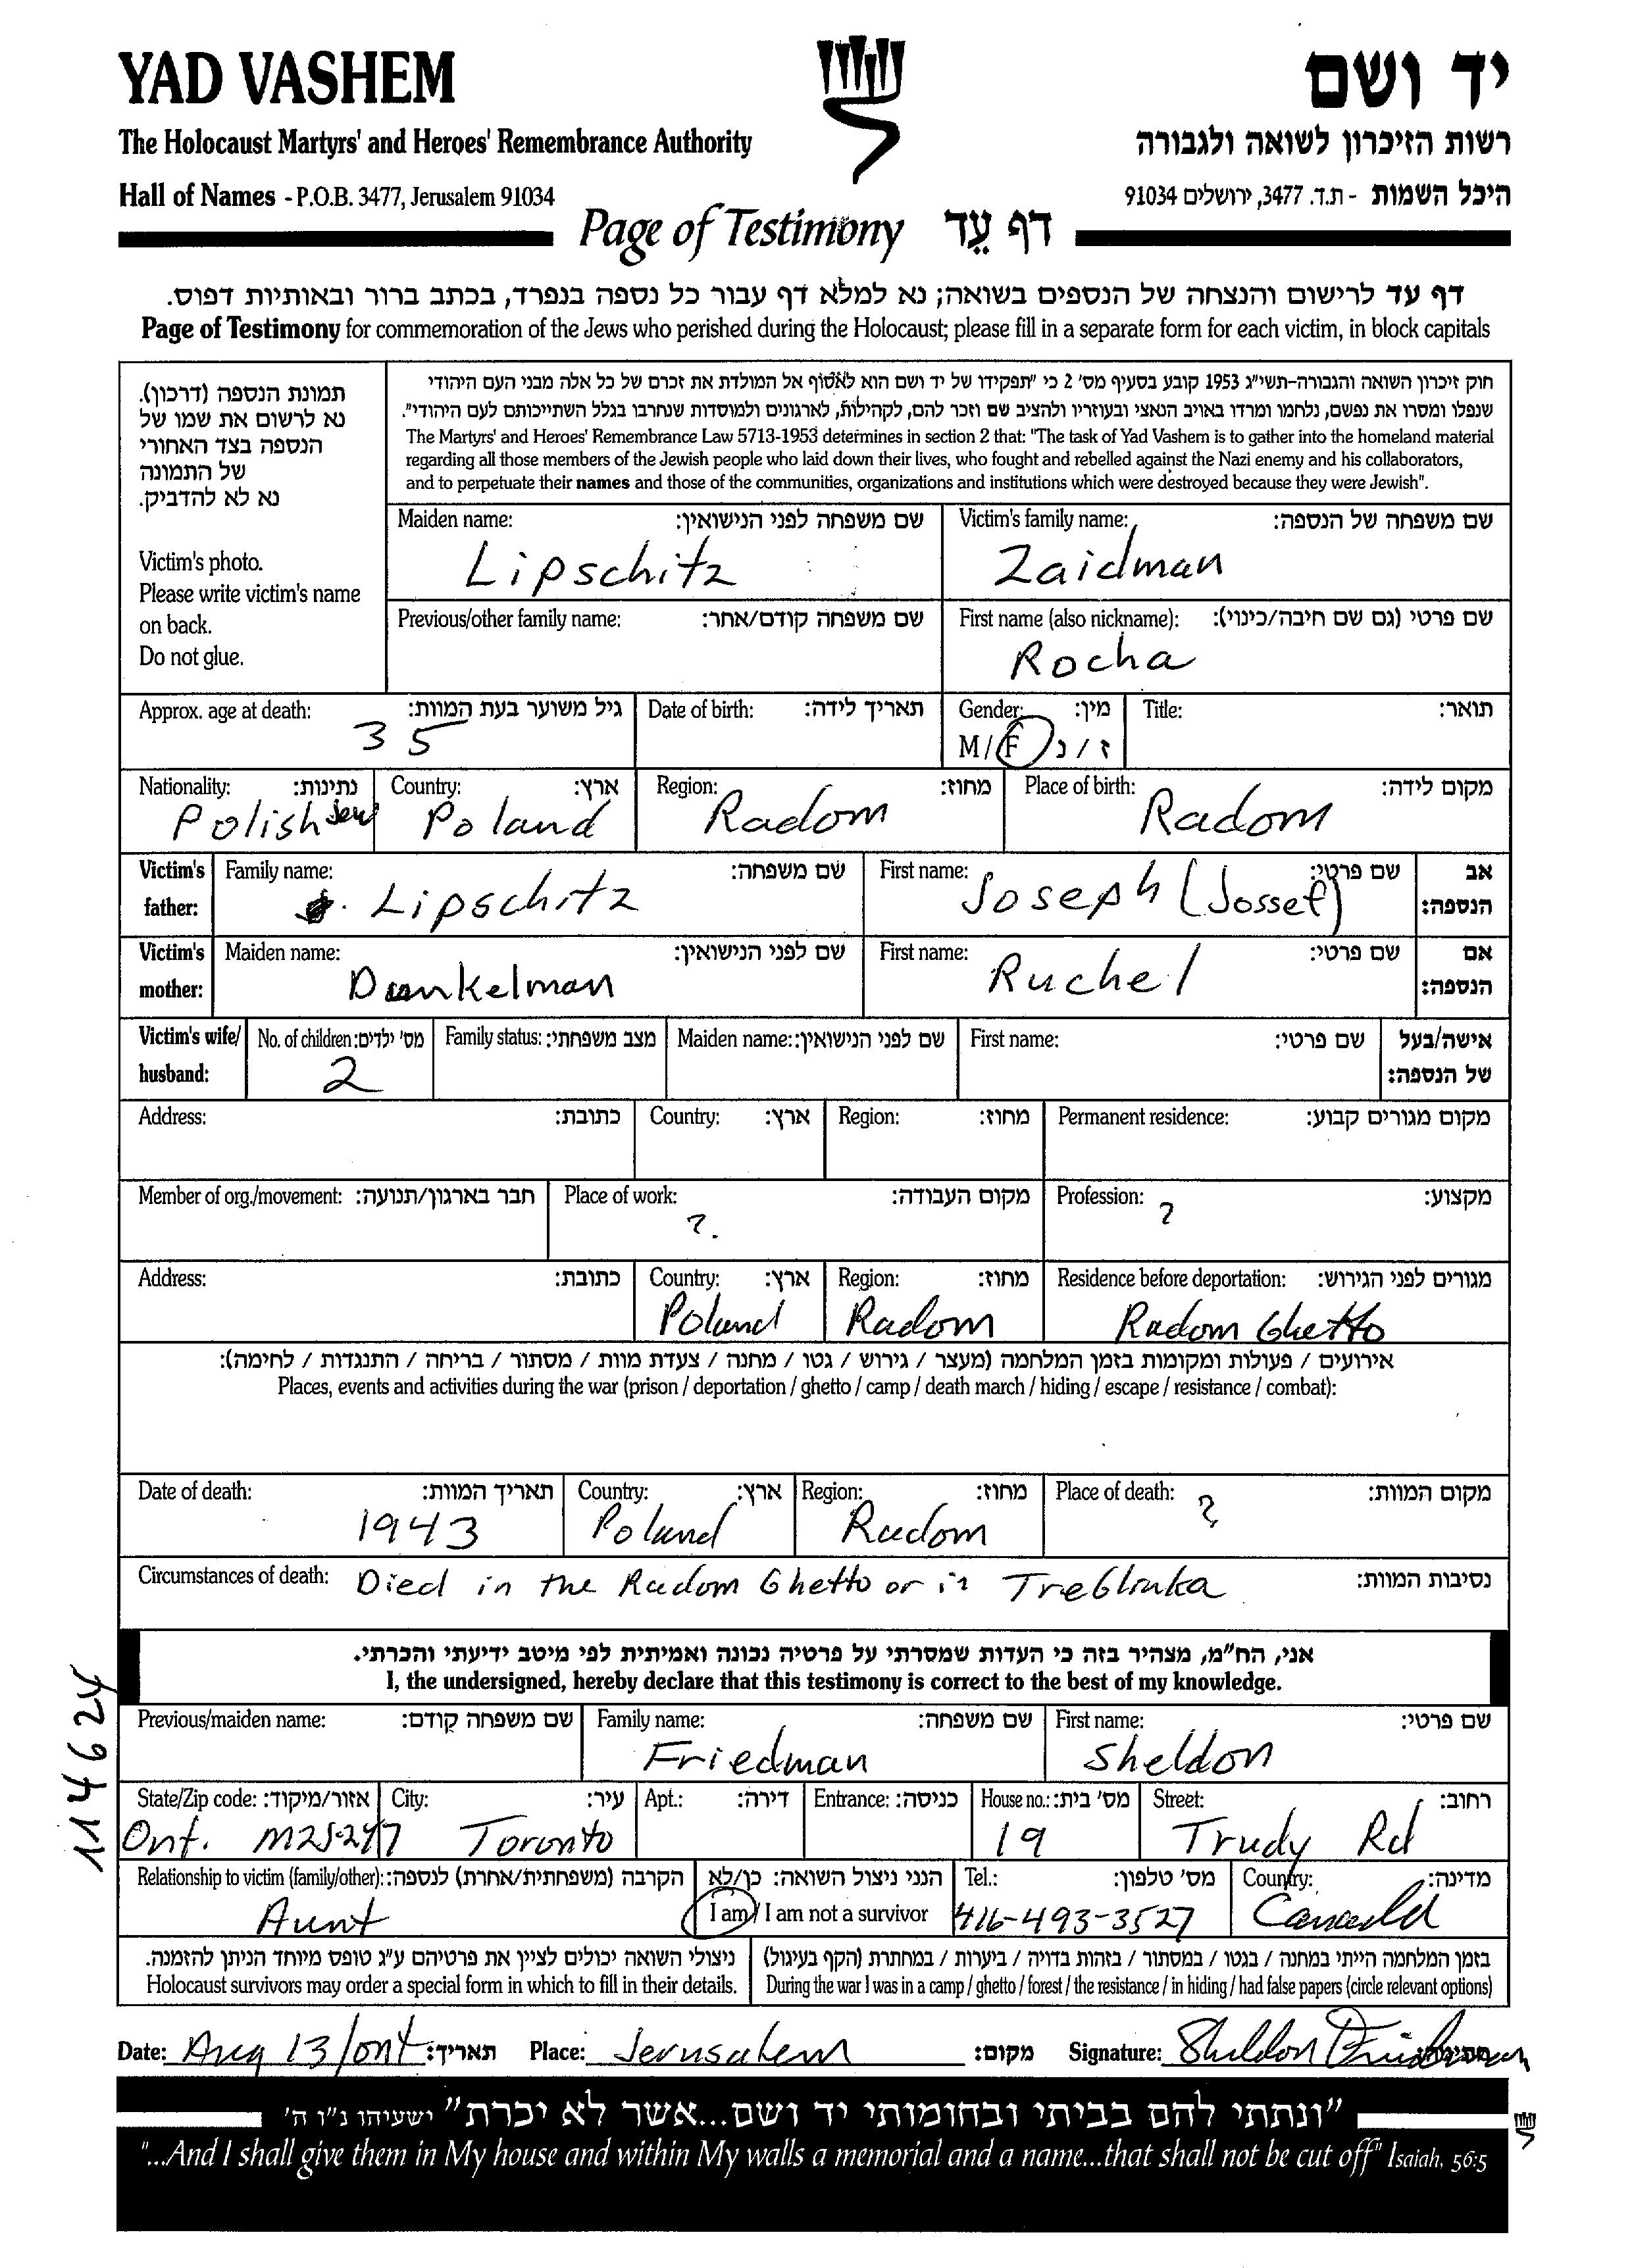 YAD VASHEM
יד ושם
The Holocaust Martyrs' and Heroes' Remembrance Authority
רשות הזיכרון לשואה ולגבורה
Hall of Names - P.O.B. 3477, Jerusalem 91034
היכל השמות - ת.ד. 3477, ירושלים 91034
Page of Testimony דף עֵד
דף עד לרישום והנצחה של הנספים בשואה; נא למלא דף עבור כל נספה בנפרד, בכתב ברור ובאותיות דפוס.
Page of Testimony for commemoration of the Jews who perished during the Holocaust; please fill in a separate form for each victim, in block capitals
תמונת הנספה (דרכון).
נא לרשום את שמו של
הנספה בצד האחורי
של התמונה
נא לא להדביק.
Victim's photo.
Please write victim's name
on back.
Do not glue.
חוק זיכרון השואה והגבורה-תשי"ג 1953 קובע בסעיף מס' 2 כי "תפקידו של יד ושם הוא לאסוף אל המולדת את זכרם של כל אלה מבני העם היהודי
שנפלו ומסרו את נפשם, נלחמו ומרדו באויב הנאצי ובעוזריו ולהציב שם וזכר להם, לקהילות, לארגונים ולמוסדות שנחרבו בגלל השתייכותם לעם היהודי".
The Martyrs' and Heroes' Remembrance Law 5713-1953 determines in section 2 that: "The task of Yad Vashem is to gather into the homeland material
regarding all those members of the Jewish people who laid down their lives, who fought and rebelled against the Nazi enemy and his collaborators,
and to perpetuate their names and those of the communities, organizations and institutions which were destroyed because they were Jewish".
Maiden name: שם משפחה לפני הנישואין: Victim's family name: שם משפחה של הנספה:
Lipschitz Zaidman
Previous/other family name: שם משפחה קודם/אחר: First name (also nickname): שם פרטי (גם שם חיבה/כינוי):
Rocha
Approx. age at death: גיל משוער בעת המוות: Date of birth: תאריך לידה: Gender: מין: Title: תואר:
35 M/F ז/נ
Nationality: נתינות: Country: ארץ: Region: מחוז: Place of birth: מקום לידה:
Polish Jew Poland Radom Radom
Victim's father: Family name: שם משפחה: First name: שם פרטי: אב הנספה:
Lipschitz Joseph (Jossef)
Victim's mother: Maiden name: שם לפני הנישואין: First name: שם פרטי: אם הנספה:
Dunkelman Ruchel
Victim's wife/ husband: No. of children: מס' ילדים: Family status: מצב משפחתי: Maiden name: שם לפני הנישואין: First name: שם פרטי: אישה/בעל של הנספה:
2
Address: כתובת: Country: ארץ: Region: מחוז: Permanent residence: מקום מגורים קבוע:
Member of org./movement: חבר בארגון/תנועה: Place of work: מקום העבודה: Profession: מקצוע:
?. ?
Address: כתובת: Country: ארץ: Region: מחוז: Residence before deportation: מגורים לפני הגירוש:
Poland Radom Radom Ghetto
אירועים / פעולות ומקומות בזמן המלחמה (מעצר / גירוש / גטו / מחנה / צעדת מוות / מסתור / בריחה / התנגדות / לחימה):
Places, events and activities during the war (prison / deportation / ghetto / camp / death march / hiding / escape / resistance / combat):
Date of death: תאריך המוות: Country: ארץ: Region: מחוז: Place of death: מקום המוות:
1943 Poland Radom ?
Circumstances of death: Died in the Radom Ghetto or in Treblinka נסיבות המוות:
אני, הח"מ, מצהיר בזה כי העדות שמסרתי על פרטיה נכונה ואמיתית לפי מיטב ידיעתי והכרתי.
I, the undersigned, hereby declare that this testimony is correct to the best of my knowledge.
114624
Previous/maiden name: שם משפחה קודם: Family name: שם משפחה: First name: שם פרטי:
Friedman Sheldon
State/Zip code: אזור/מיקוד: City: עיר: Apt.: דירה: Entrance: כניסה: House no.: מס' בית: Street: רחוב:
Ont. Toronto 19 Trudy Rd
Relationship to victim (family/other): הקרבה (משפחתית/אחרת) לנספה: הנני ניצול השואה: כן/לא Tel.: מס' טלפון: Country: מדינה:
Aunt I am / I am not a survivor 416-493-3527 Canada
ניצולי השואה יכולים לציין את פרטיהם ע"ג טופס מיוחד הניתן להזמנה. בזמן המלחמה הייתי במחנה / בגטו / במסתור / בזהות בדויה / ביערות / במחתרת (הקף בעיגול)
Holocaust survivors may order a special form in which to fill in their details. During the war I was in a camp / ghetto / forest / the resistance / in hiding / had false papers (circle relevant options)
Date: Aug 13/ont תאריך: Place: Jerusalem מקום: Signature: Sheldon Friedman חתימה:
"ונתתי להם בביתי ובחומותי יד ושם...אשר לא יכרת" ישעיהו נ"ו ה'
"...And I shall give them in My house and within My walls a memorial and a name...that shall not be cut off" Isaiah, 56:5